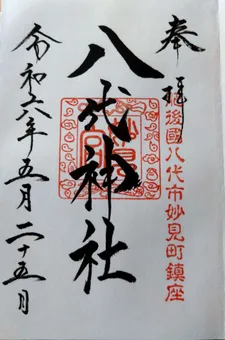 奉拝
肥後國八代市妙見町鎮座
八代神社
令和六年五月二十五日